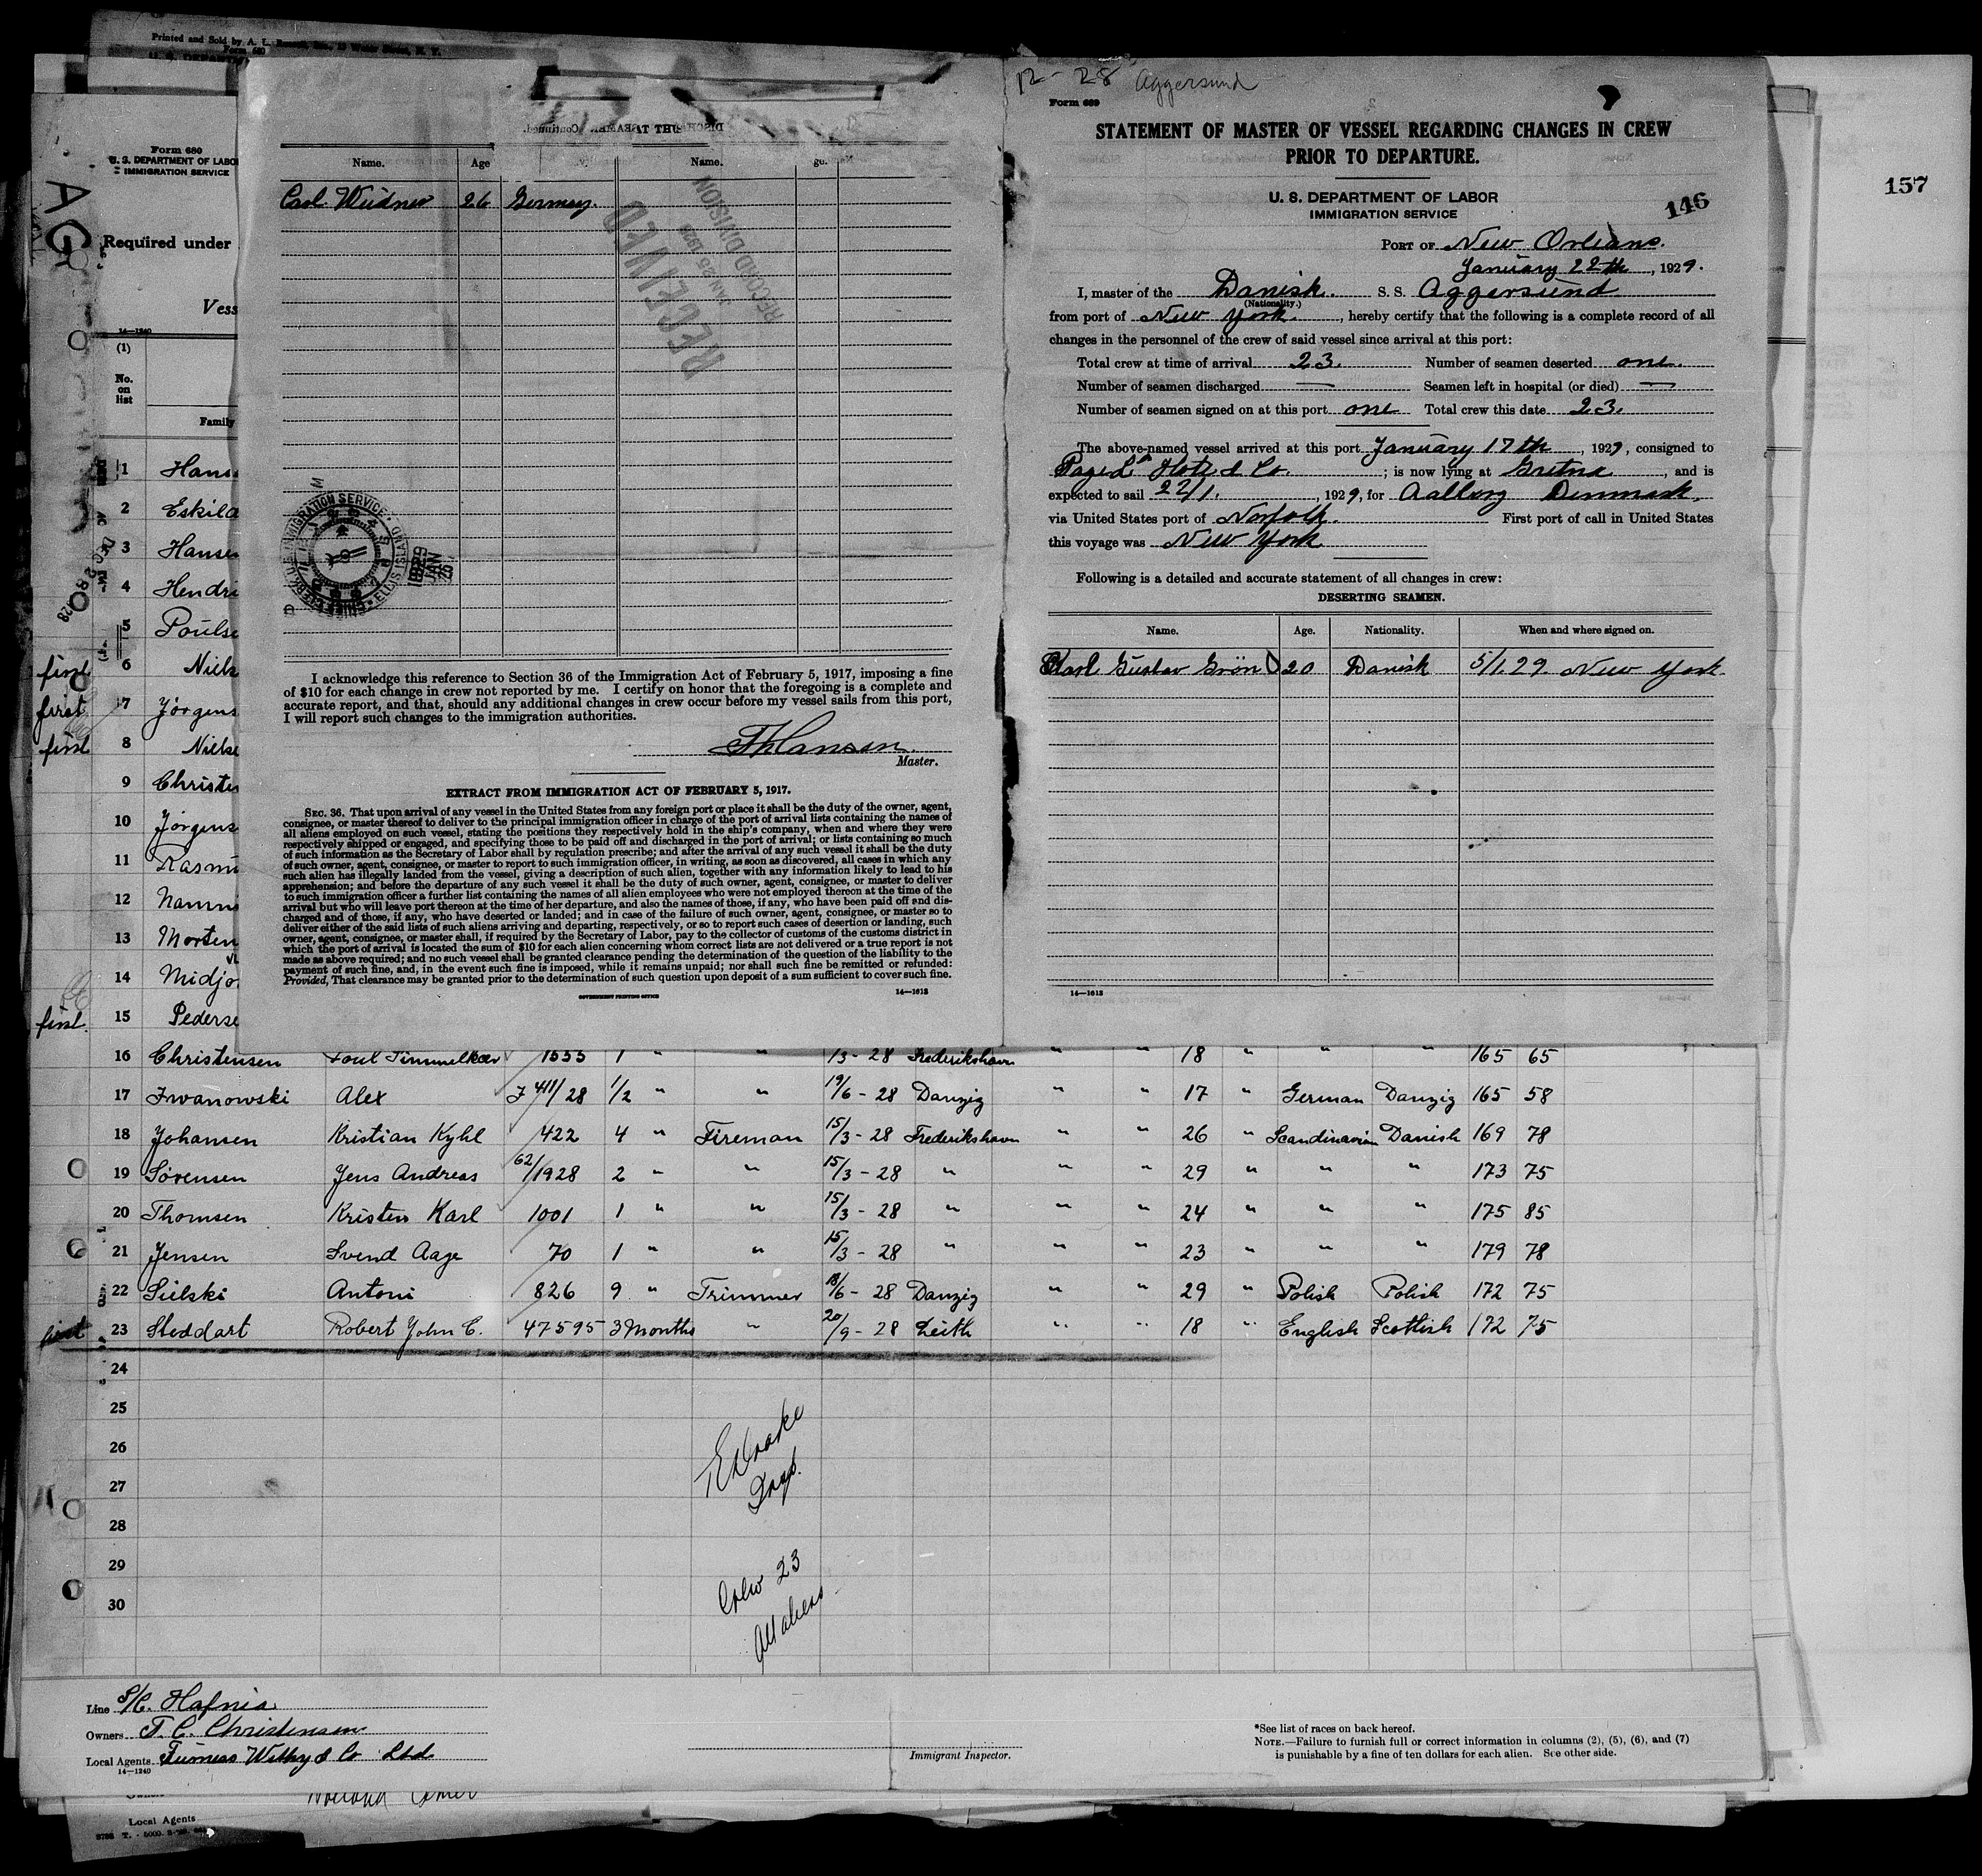 Printed and Sold by A. L.
Form 680
Form 680
U. S. DEPARTMENT OF LABOR
IMMIGRATION SERVICE
Required under
Vess
14—1240
(1)
No. on list
Family
1 Hans
2 Eskild
3 Hanse
4 Hendri
5 Pouls
first 6 Niels
first 7 Jørgens
first 8 Niels
9 Christe
10 Jørgens
11 Rasmu
12
13 Morten
14 Midjo
first 15 Peders
DEC 28
Name. Age Name.
Carl Weidner 26 Germany.
RECEIVED
JAN 25 1929
RECORD DIVISION
I acknowledge this reference to Section 36 of the Immigration Act of February 5, 1917, imposing a fine
of $10 for each change in crew not reported by me. I certify on honor that the foregoing is a complete and
accurate report, and that, should any additional changes in crew occur before my vessel sails from this port,
I will report such changes to the immigration authorities.
Hansen
Master.
EXTRACT FROM IMMIGRATION ACT OF FEBRUARY 5, 1917.
SEC. 36. That upon arrival of any vessel in the United States from any foreign port or place it shall be the duty of the owner, agent,
consignee, or master thereof to deliver to the principal immigration officer in charge of the port of arrival lists containing the names of
all aliens employed on such vessel, stating the positions they respectively hold in the ship's company, when and where they were
respectively shipped or engaged, and specifying those to be paid off and discharged in the port of arrival; or lists containing so much
of such information as the Secretary of Labor shall by regulation prescribe; and after the arrival of any such vessel it shall be the duty
of such owner, agent, consignee, or master to report to such immigration officer, in writing, as soon as discovered, all cases in which any
such alien has illegally landed from the vessel, giving a description of such alien, together with any information likely to lead to his
apprehension; and before the departure of any such vessel it shall be the duty of such owner, agent, consignee, or master to deliver
to such immigration officer a further list containing the names of all alien employees who were not employed thereon at the time of the
arrival but who will leave port thereon at the time of her departure, and also the names of those, if any, who have been paid off and dis-
charged and of those, if any, who have deserted or landed; and in case of the failure of such owner, agent, consignee, or master so to
deliver either of the said lists of such aliens arriving and departing, respectively, or so to report such cases of desertion or landing, such
owner, agent, consignee, or master shall, if required by the Secretary of Labor, pay to the collector of customs of the customs district in
which the port of arrival is located the sum of $10 for each alien concerning whom correct lists are not delivered or a true report is not
made as above required; and no such vessel shall be granted clearance pending the determination of the question of the liability to the
payment of such fine, and, in the event such fine is imposed, while it remains unpaid; nor shall such fine be remitted or refunded:
Provided, That clearance may be granted prior to the determination of such question upon deposit of a sum sufficient to cover such fine.
GOVERNMENT PRINTING OFFICE 14—1613
12-28 Aggersund
Form 689
STATEMENT OF MASTER OF VESSEL REGARDING CHANGES IN CREW
PRIOR TO DEPARTURE.
U. S. DEPARTMENT OF LABOR
IMMIGRATION SERVICE
146
157
PORT OF New Orleans.
January 22th, 1929.
I, master of the Danish. S. S. Aggersund
(Nationality.)
from port of New York., hereby certify that the following is a complete record of all
changes in the personnel of the crew of said vessel since arrival at this port:
Total crew at time of arrival 23. Number of seamen deserted one.
Number of seamen discharged — Seamen left in hospital (or died) —
Number of seamen signed on at this port one Total crew this date 23.
The above-named vessel arrived at this port January 17th, 1929, consigned to
& Co. ; is now lying at Gretna, and is
expected to sail 22/1., 1929, for Aalborg Denmark.
via United States port of Norfolk. First port of call in United States
this voyage was New York
Following is a detailed and accurate statement of all changes in crew:
DESERTING SEAMEN.
Name. Age. Nationality. When and where signed on.
Karl Gustav Grön 20 Danish 5/1.29. New York.
14—1613
16 Christensen Poul Himmelkær 1555 1 " " /3-28 Frederikshavn " " 18 " " " 165 65
17 Iwanowski Alex J 411/28 1/2 " " 19/6-28 Danzig " " 17 " German Danzig 165 58
18 Johansen Kristian Kyhl 422 4 " Fireman 15/3-28 Frederikshavn " " 26 " Scandinavian Danish 169 78
19 Sörensen Jens Andreas 62/1928 2 " " 15/3-28 " " " 29 " " " 173 75
20 Thomsen Kristen Karl 1001 1 " " 15/3-28 " " " 24 " " " 175 85
21 Jensen Svend Aage 70 1 " " 15/3-28 " " " 23 " " " 179 78
22 Sielski Antoni 826 9 " Trimmer 18/6-28 Danzig " " 29 " Polish Polish 172 75
first 23 Steddart Robert John C. 47595 3 Months " 20/9-28 Leith " " 18 " English Scottish 172 75
24
25
26
27
28
29
30
Insp.
Crew 23
All aliens
Line S/C. Hafnia
Owners T. C. Christensen
Local Agents Furness Withy & Co Ltd.
14—1240
Immigrant Inspector.
*See list of races on back hereof.
NOTE.—Failure to furnish full or correct information in columns (2), (5), (6), and (7)
is punishable by a fine of ten dollars for each alien. See other side.
Local Agents